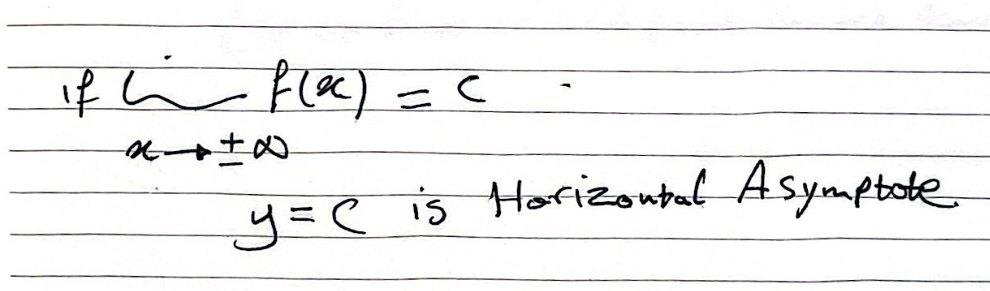 if lim f(x) = c
x→±∞
y=c is Horizontal Asymptote